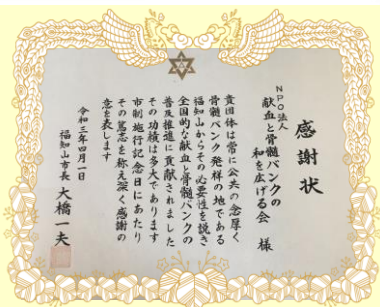 感謝状
NPO法人
献血と骨髄バンクの
和を広げる会 様
貴団体は常に公共の念厚く
骨髄バンク発祥の地である
福知山からその必要性を説き
全国的な献血と骨髄バンクの
普及推進に貢献されました
その功績は多大であります
市制施行記念日にあたり
その篤志を称え深く感謝の
意を表します
令和三年四月一日
福知山市長 大橋一夫